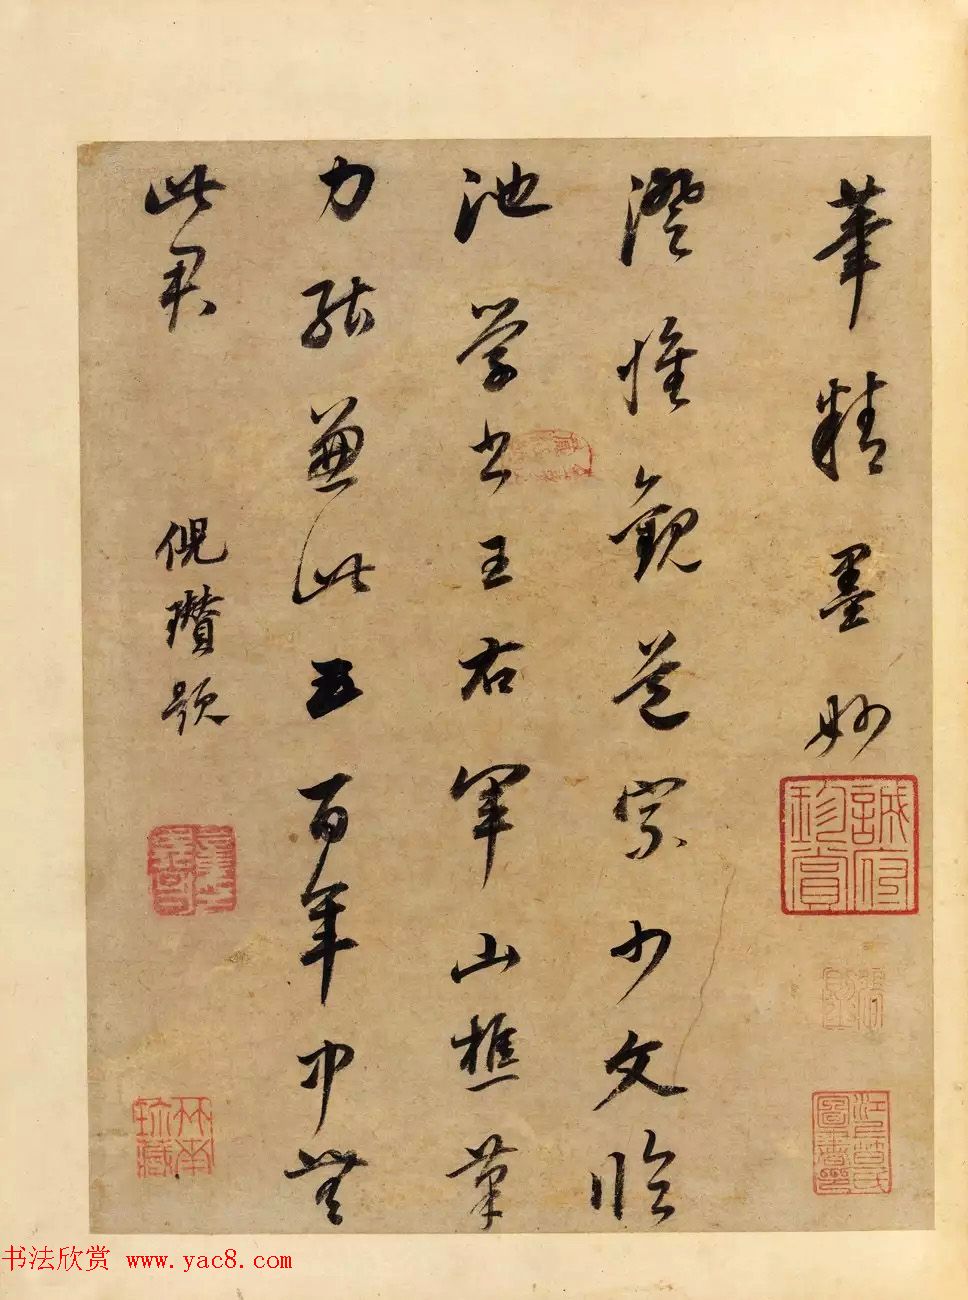 筆精墨妙
澄懷觀道宗少文臨
池學書王右軍山樵筆
力能兼此五百年中無
此君
倪瓚題
书法欣赏 www.yac8.com